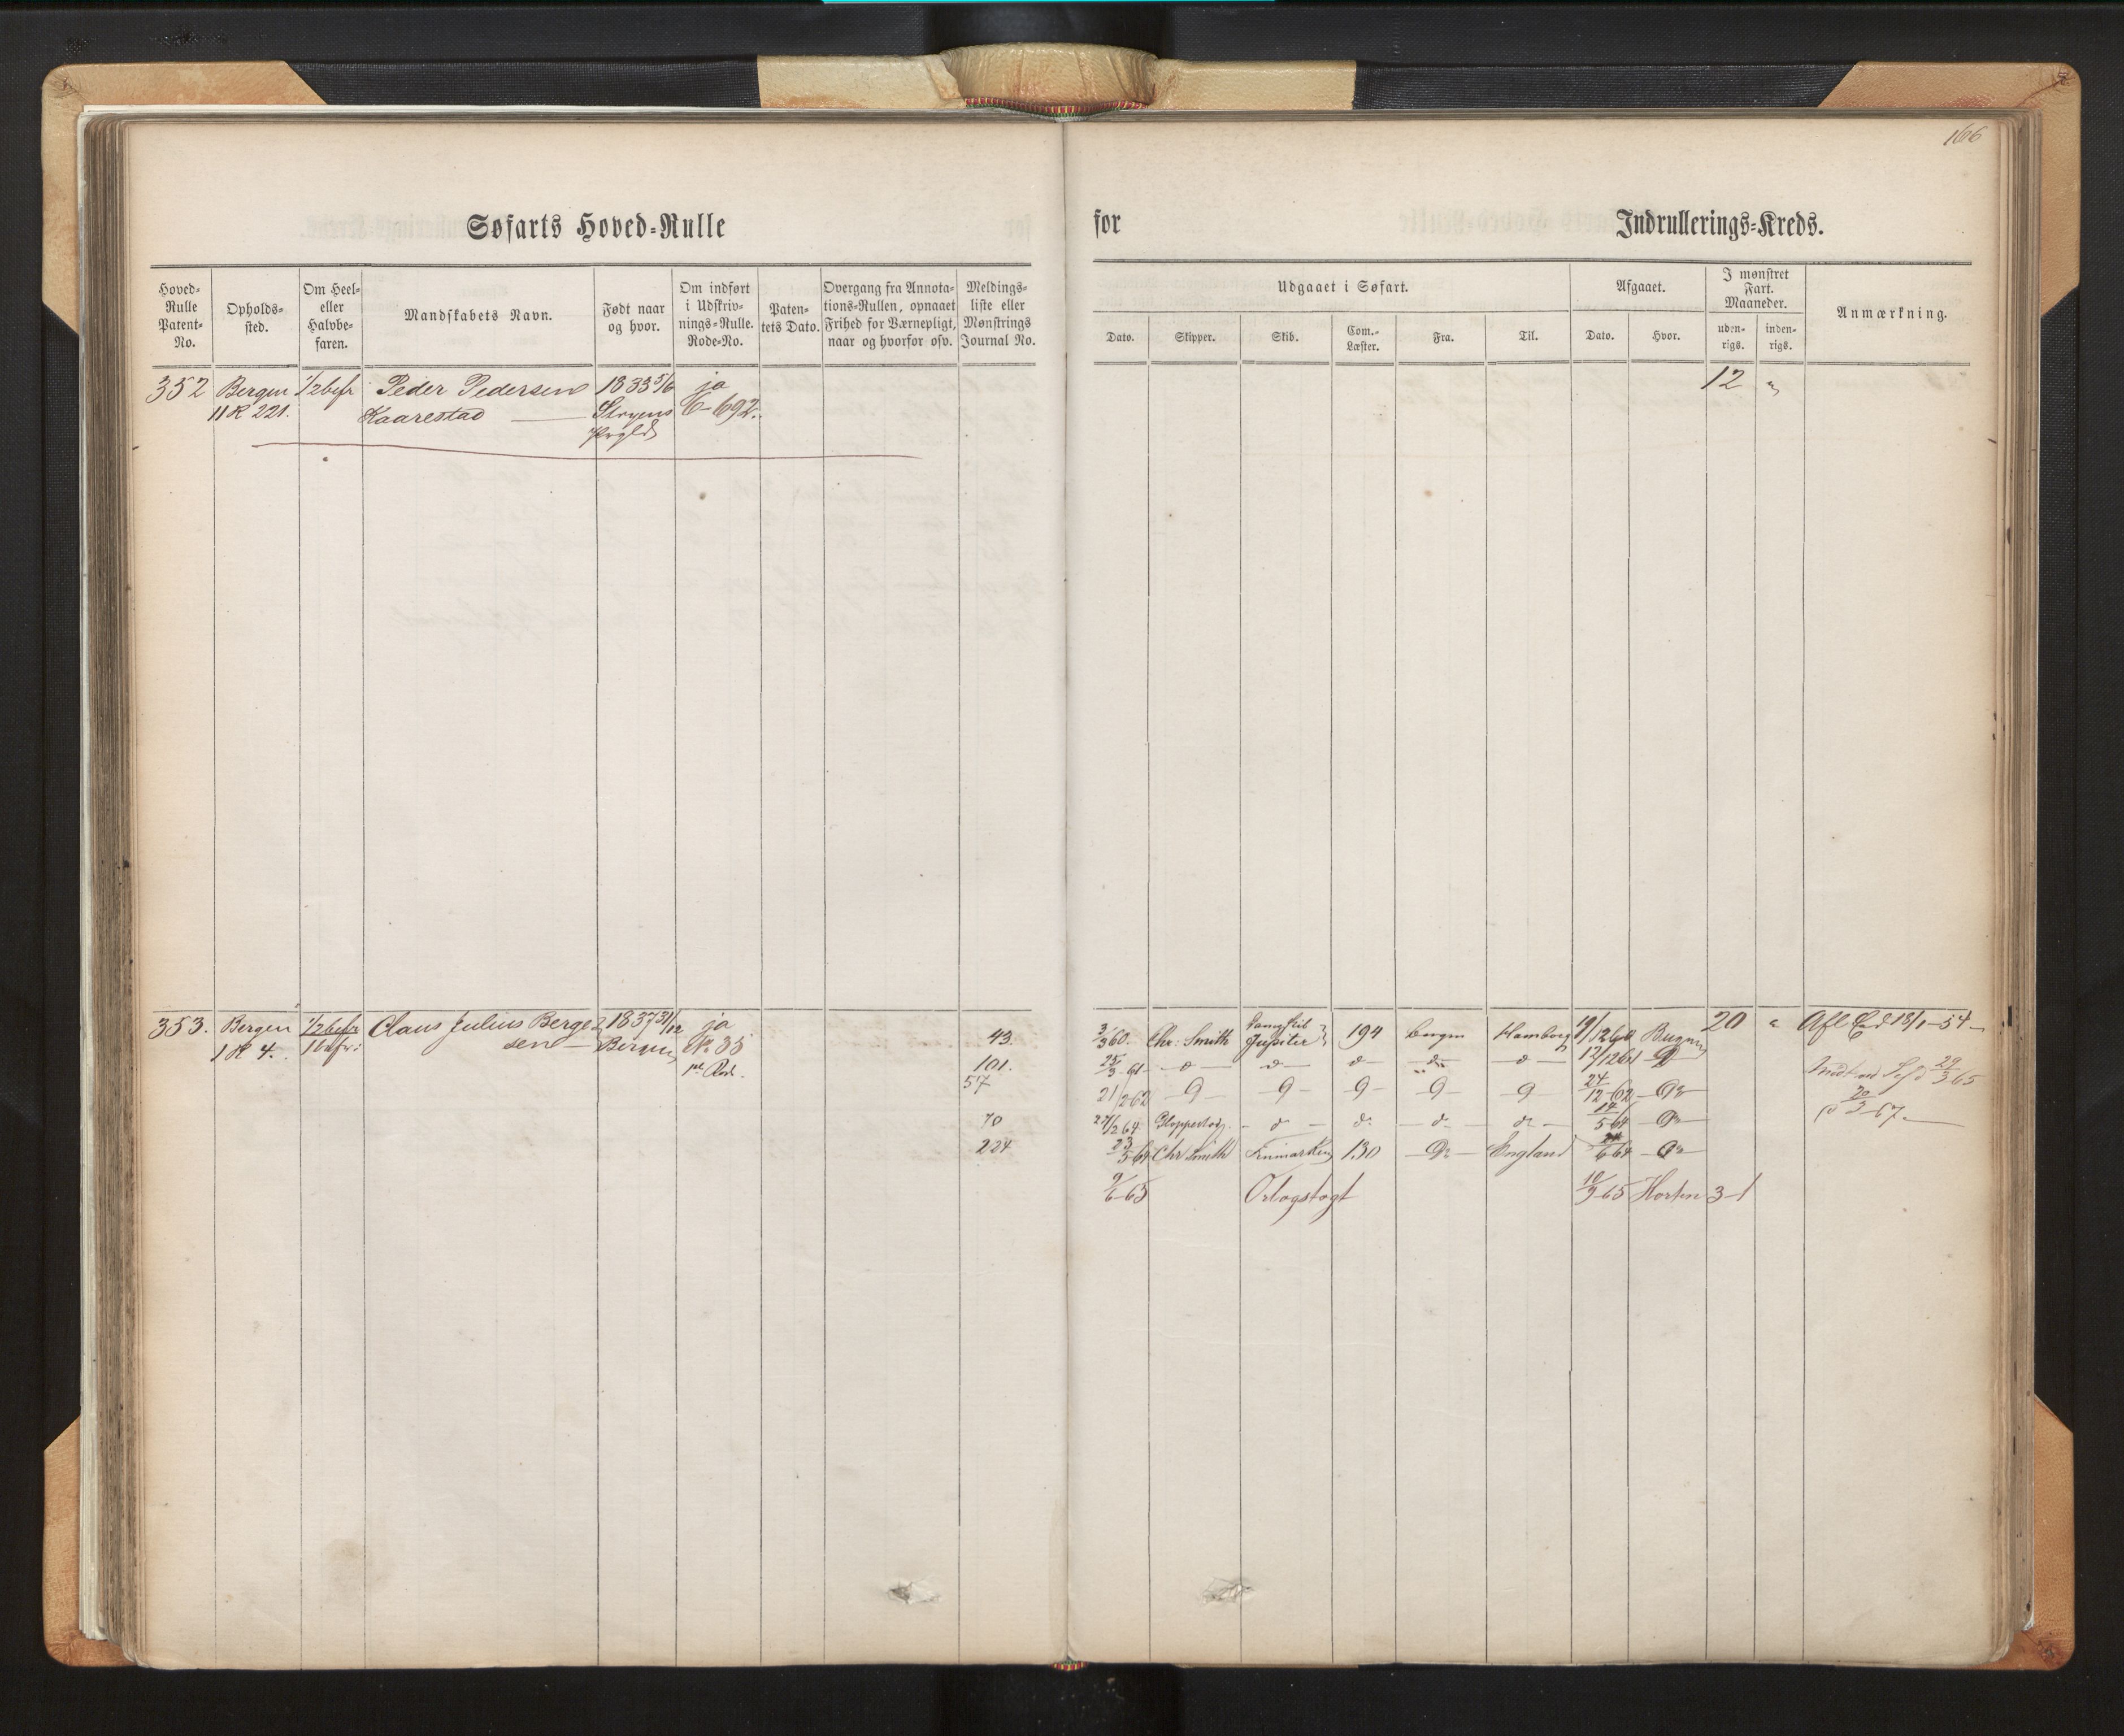 166
Søfarts Hoved-Rulle
for
Indrullerings-Kreds.
Hoved-Rulle Patent-No.
Opholds-sted.
Om Heel- eller Halvbe-faren.
Mandskabets Navn.
Født naar og hvor.
Om indført i Udskriv-nings-Rulle. Rode-No.
Paten-tets Dato.
Overgang fra Annota-tions-Rullen, opnaaet Frihed for Værnepligt, naar og hvorfor osv.
Meldings-liste eller Mønstrings Journal No.
Udgaaet i Søfart.
Dato.
Skipper.
Skib.
Com.-Læster.
Fra.
Til.
Afgaaet.
Dato.
Hvor.
I mønstret Fart. Maaneder.
uden-rigs.
inden-rigs.
Anmærkning.
352 Bergen 1/2 befr Peder Pedersen 1833 5/6 ja 12 "
11 R 221. Kaarestad Stryens 6-692.
Prgld
353. Bergen 1/2 befr Claus Julius Berge 1837 31/12 ja
1 R 4. 1 befr: sen Bergen No 35
1ste Rode.
43. 3/3 60. Chr. Smith Dampskib Jupiter 194 Bergen Hamborg 19/12 60 Bergen 20 " Afl Ed 18/1-54
101. 25/3-61 - d - d - d - d - d - 12/12 61 - D
57 21/2 62 - d - d - d - d - d - 24/12-62 - do
70 27/2 64 - d - d - d - d - 14/5 64 - do
224 23/5 64 Chr Smith Finmarken 130 - do - England 24/6 64 - do
9/6-65 Orlogstogt 10/9-65 Horten 3-1
29/3 65
20/3-67.